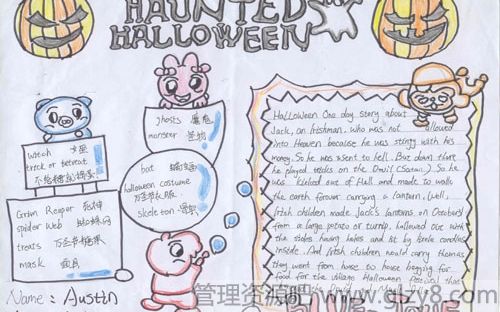 HAUNTED
HALLOWEEN
witch 女巫
trick or retreat
不给糖就捣蛋
ghosts 魔鬼
monster 怪物
bat 蝙蝠
halloween costume
万圣节衣服
skeleton
Grim Reaper 死神
spider Web 蜘蛛网
treats 万圣节糖果
mask 面具
Name: Austin
Halloween One day story about
Jack, an Irishman. who was not allowed
into Heaven because he was stingy with his
money. So he was sent to hell. But down there
he played tricks on the Devil (Satan). So he
was kicked out of Hell and made to walk
the earth forever carrying a lantern. Well,
Irish children made Jack's lanterns on October
from a large potato or turnip, hollowed out with
the sides having holes and lit by little candles
inside. And Irish children would carry them as
they went from house to house begging for
food for the village Halloween festival that
the Druid god Muck Olla
管理资源吧 www.glzy8.com